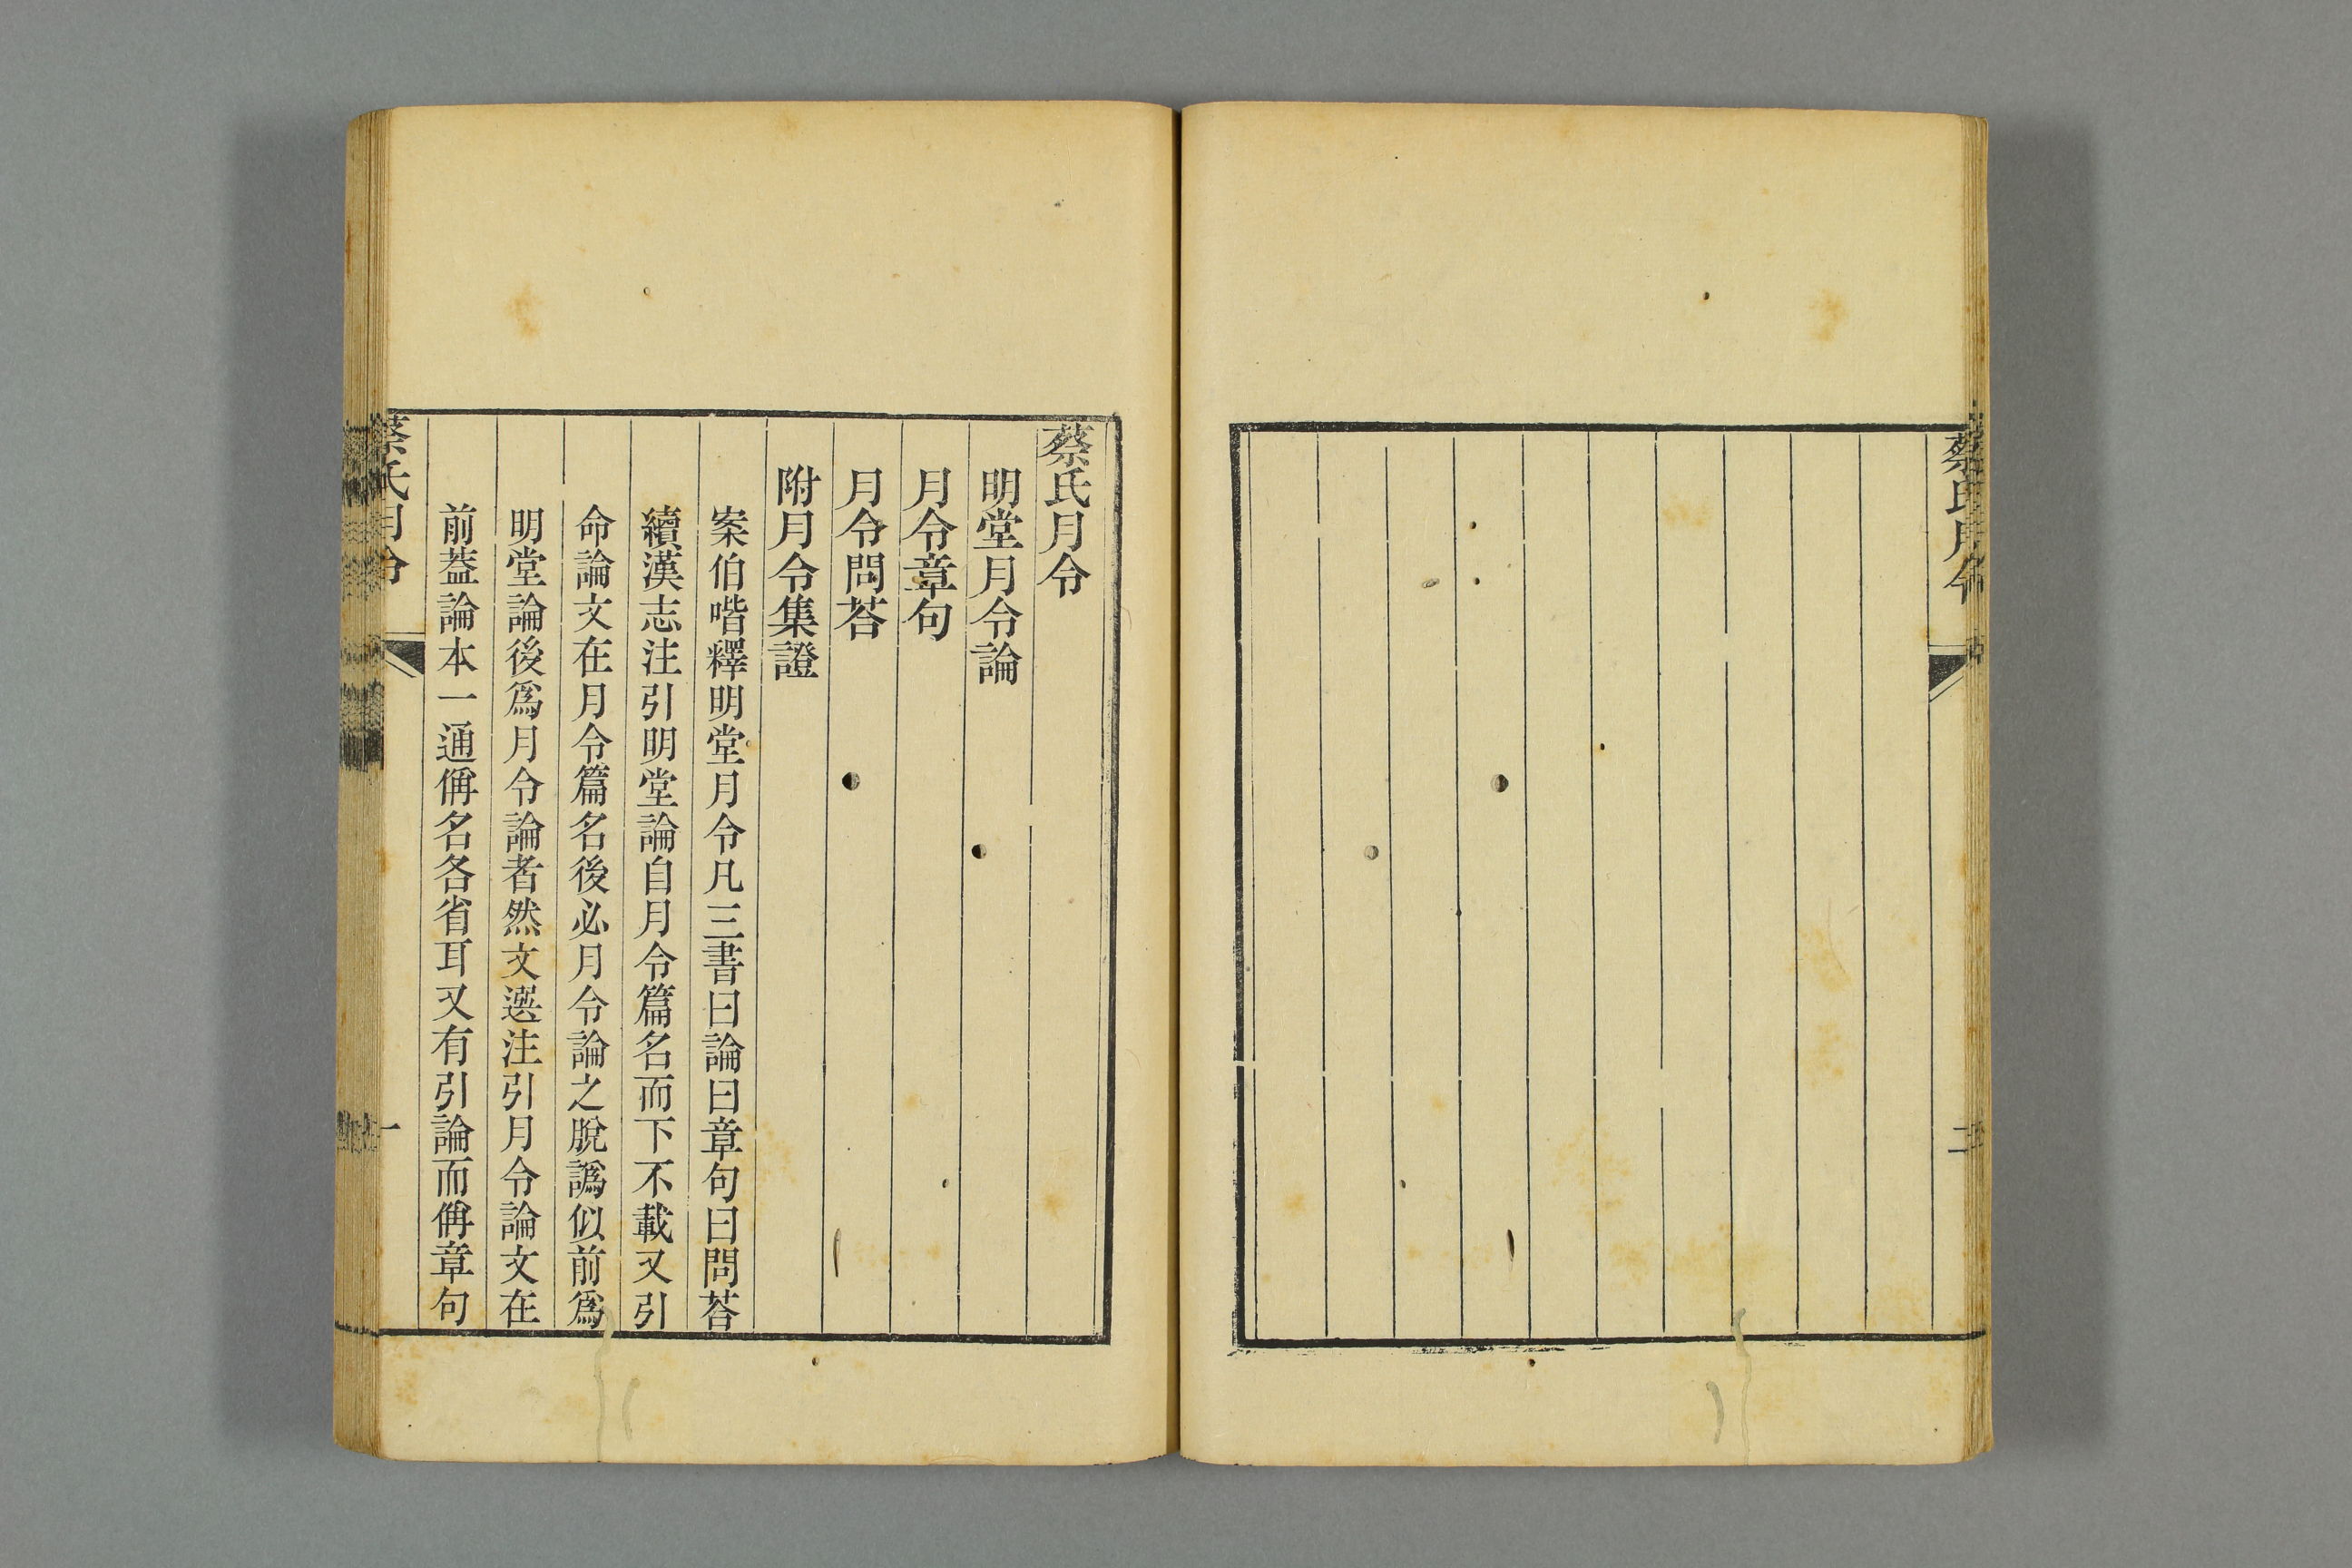 蔡氏月令
二
蔡氏月令
明堂月令論
月令章句
月令問荅
附月令集證
案伯喈釋明堂月令凡三書曰論曰章句曰問荅
續漢志注引明堂論自月令篇名而下不載又引
命論文在月令篇名後必月令論之脫譌似前爲
明堂論後爲月令論者然文選注引月令論文在
前蓋論本一通偁名各省耳又有引論而偁章句
蔡氏月令
一